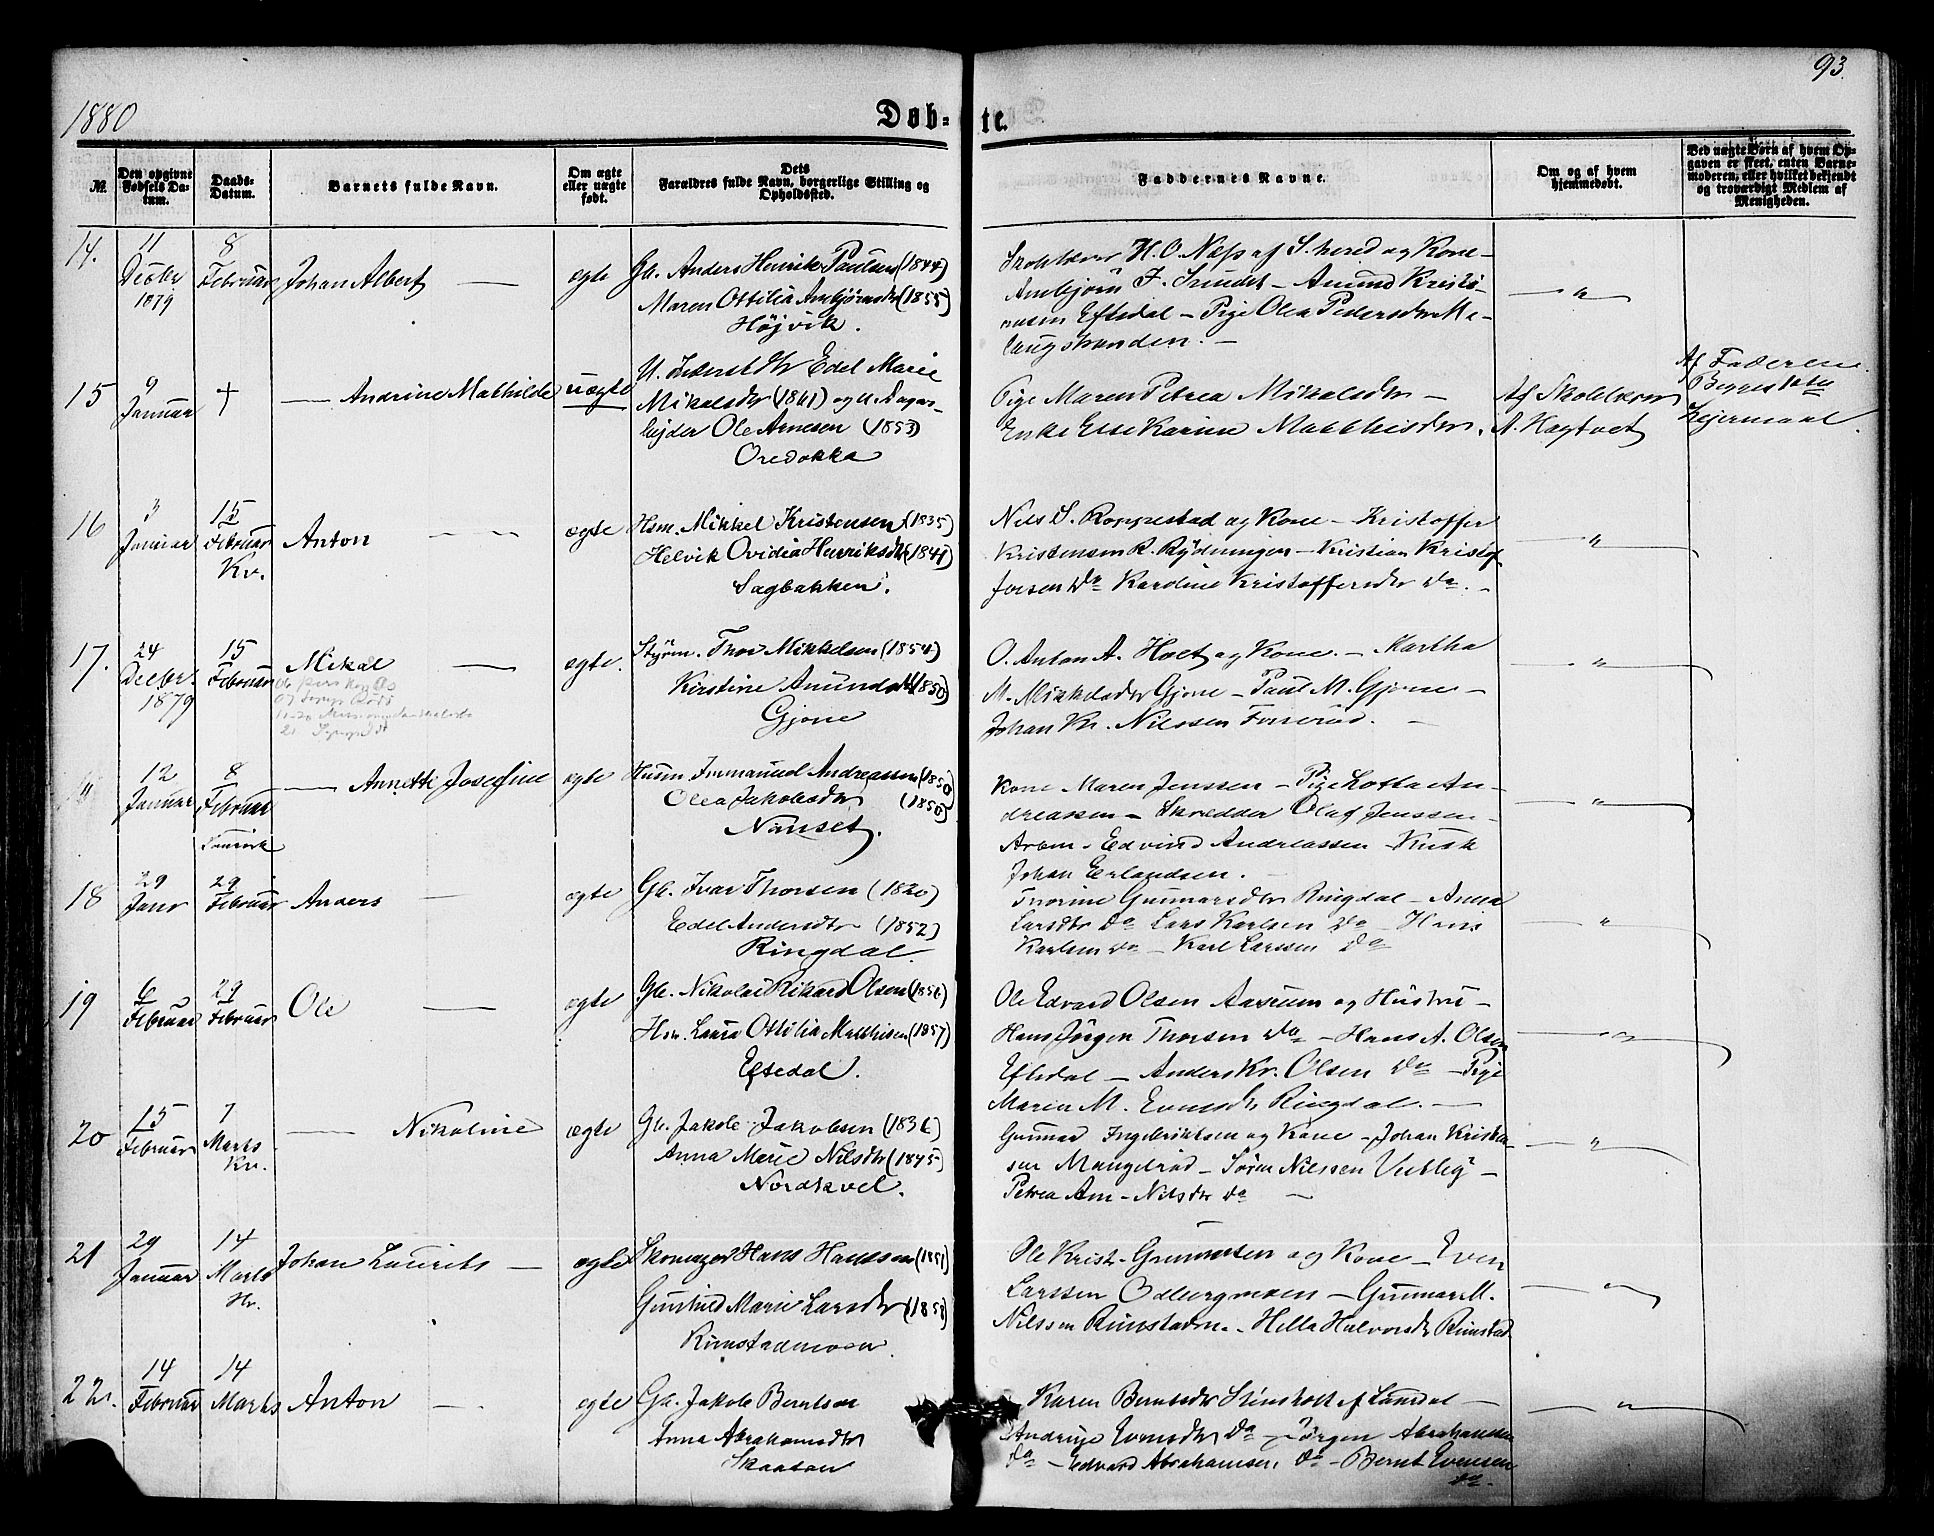 93.
1880
Døb-
te.
№.
Den opgivne Fødsels Da-tum.
Daabs-Datum.
Barnets fulde Navn.
Om ægte eller uægte født.
Dets Forældres fulde Navn, borgerlige Stilling og Opholdssted.
Faddernes Navne.
Om og af hvem hjemmedøbt.
Ved uægte Børn af hvem Op-gaven er skeet, enten Barne-moderen, eller hvilket bekjendt og troværdigt Medlem af Menigheden.
14.
11 Decbr 1879
8 Februar
Johan Albert
ægte
Gb. Anders Henrik Paulsen (1844)
Maren Ottilia Arnbjørnsdtr (1855)
Højvik.
H. O. Næss af S. hered og Kone –
Arnbjørn – Amund Kristi-
ansen Eftedal – Pige Olea Pedersdtr Ma-
laugstranden. –
15
9 Januar
+
Andrine Mathilde
uægte
U. Edel Marie
Mikalsdtr (1861) og
Ole Arnesen (1853)
Oredokka
Pige Maren Petrea Mikalsdtr –
Enke Else Karine Matthisdtr.
Af Skolelærer
A. Hagtvet
Af Faderen.
Begges 1ste
Lejermaal.
16
Januar
15 Februar
Kv.
Anton
ægte
Hsm. Mikkel Kristensen (1835)
Helvik Ovidia Henriksdtr (1841)
Sagbakken.
Nils S. Roppestad og Kone – Kristoffer
Kristensen R. Rydningen – Kristian Kristof
fersen Do Karoline Kristoffersdtr Do. –
17.
24 Decbr. 1879
15 Februar
Mikal
ægte.
Styrm. Thor Mikkelsen (1854)
Kirstine Anundsdtr (1850)
Gjone
O. Anton A. Holt og Kone. – Martha
M. Mikkelsdtr Gjone – Paul M. Gjone –
Johan Kr. Nilssen
12 Januar
8 Februar
Annette Josefine
ægte
Husm Immanuel Andreassen (1850)
Olea Jakobsdtr (1850)
Nanset.
Kone Maren Jenssen – Pige Lotta An-
dreassen – Skrædder Olaf Jenssen –
Edvind Andreassen – Kusk
Johan Erlandsen.
18
29 Janr
29 Februar
Anders
ægte
Gb. Ivar Thorsen (1820)
Edel Andersdtr (1852)
Ringdal.
Thorine Gunnarsdtr Ringdal – Anna
Larsdtr Do Lars Karlsen Do – Hans
Karlsen Do – Karl Larssen Do
19
6 Februar
29 Februar
Ole
ægte
Gb. Nikolai Rikard Olsen (1856)
Laura Ottilia Matthisen (1857)
Eftedal.
Ole Edvard Olsen Aasrum og Hustru –
Hans Jørgen Thorsen Do – Hans A. Olsen
Eftedal – Anders Kr. Olsen Do – Pige
Maren M. Evensdtr Ringdal. –
20
15 Februar
7 Marts
Kv.
Nikoline
ægte
Gb. Jakob Jakobsen (1836)
Anna Marie Nilsdtr (1845)
Nordkvel.
Gunnar Ingebriktsen og Kone – Johan Kristia-
sen Mangelrød – Søren Nilssen Vestby –
Petrea Am – Nilsdtr Do –
21
29 Januar
14 Marts
Hr.
Johan Laurits
ægte
Skomager Hans Hanssen (1851)
Gunhild Marie Larsdtr (1858)
Rimstadmoen.
Ole Krist. Gunnarsen og Kone – Even
Larssen Odbergmoen – Gunnar M.
Nilssen Rimstadm. – Hella Halvorsdtr Rimstad
22.
14 Februar
14 Marts
Anton
ægte
Gb. Jakob Berntsen
Anna Abrahamsdtr
Skaatan
Karen Berntsdtr Stensholt af Laurdal –
Andrine Evensdtr Do – Jørgen Abrahamsen
Do – Edvard Abrahamsen Do – Bernt Evensen
Do.